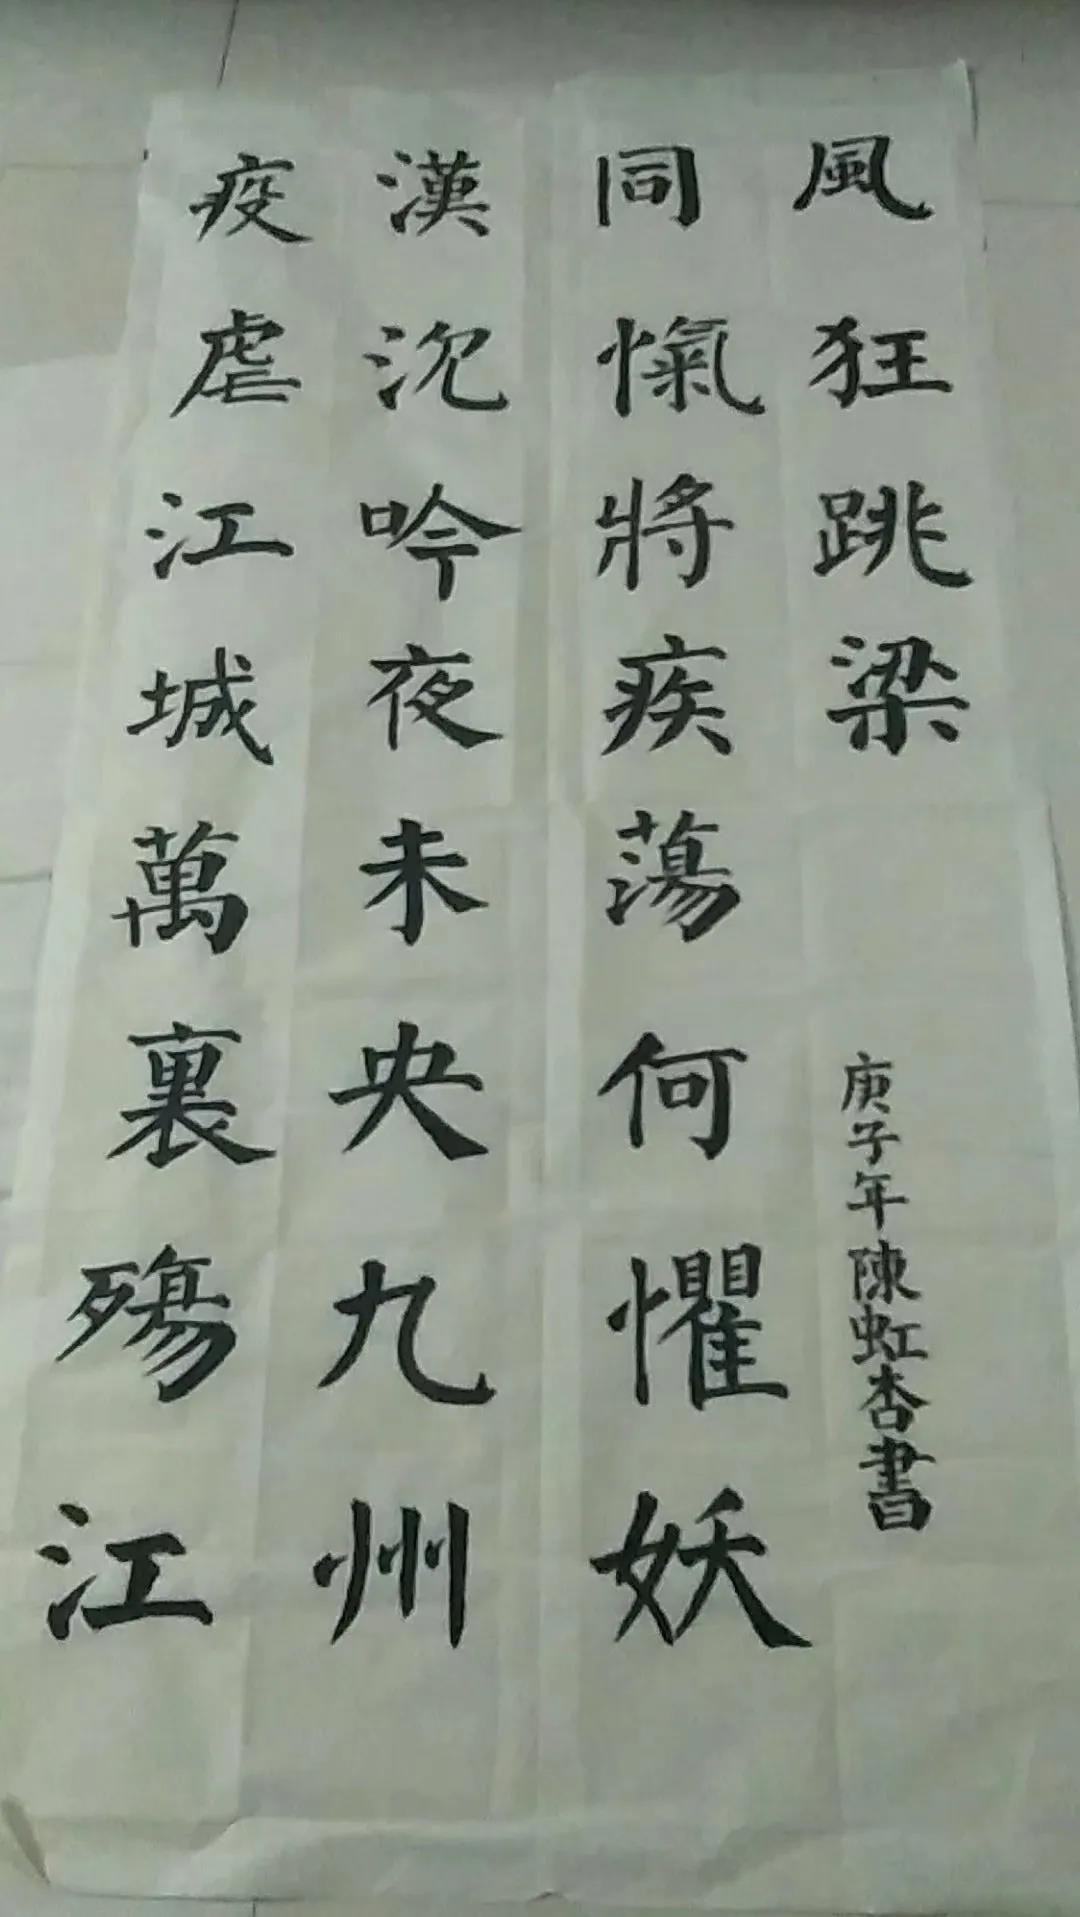 疫虐江城萬裏殤江
漢沉吟夜未央九州
同愾將疾蕩何懼妖
風狂跳梁
庚子年陳虹杏書